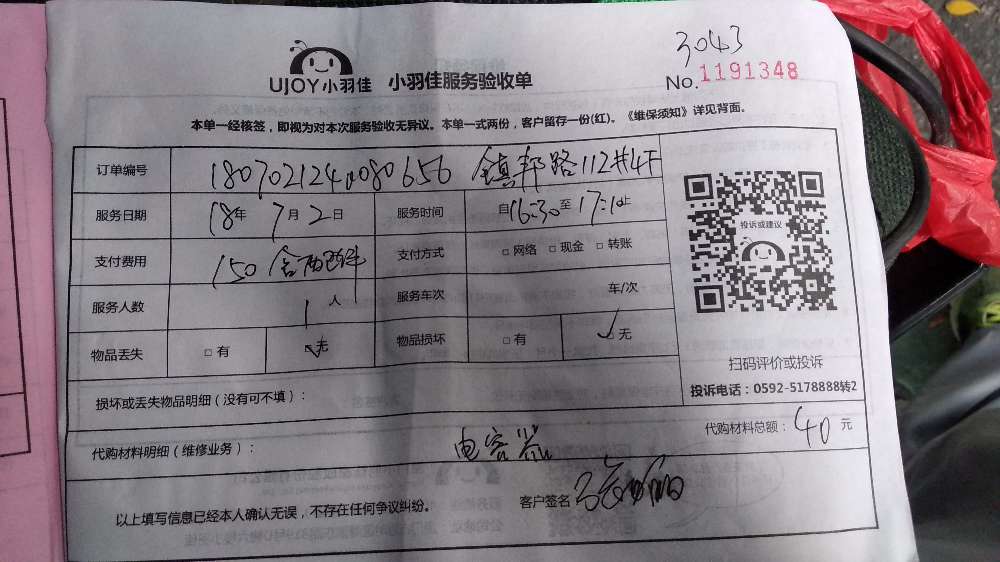 3043
UJOY小羽佳 小羽佳服务验收单 No.1191348
本单一经核签，即视为对本次服务验收无异议。本单一式两份，客户留存一份(红)。《维保须知》详见背面。
订单编号 镇邦路112#4F
服务日期 18年 7月2日 服务时间 自16:30至17:10止
支付费用 150含 支付方式 □网络 □现金 □转账
服务人数 1人 服务车次 车/次
物品丢失 □有 ☑无 物品损坏 □有 ✓无
投诉或建议
扫码评价或投诉
投诉电话：0592-5178888转2
损坏或丢失物品明细（没有可不填）：
代购材料明细（维修业务）： 电容器 代购材料总额：40元
以上填写信息已经本人确认无误，不存在任何争议纠纷。 客户签名